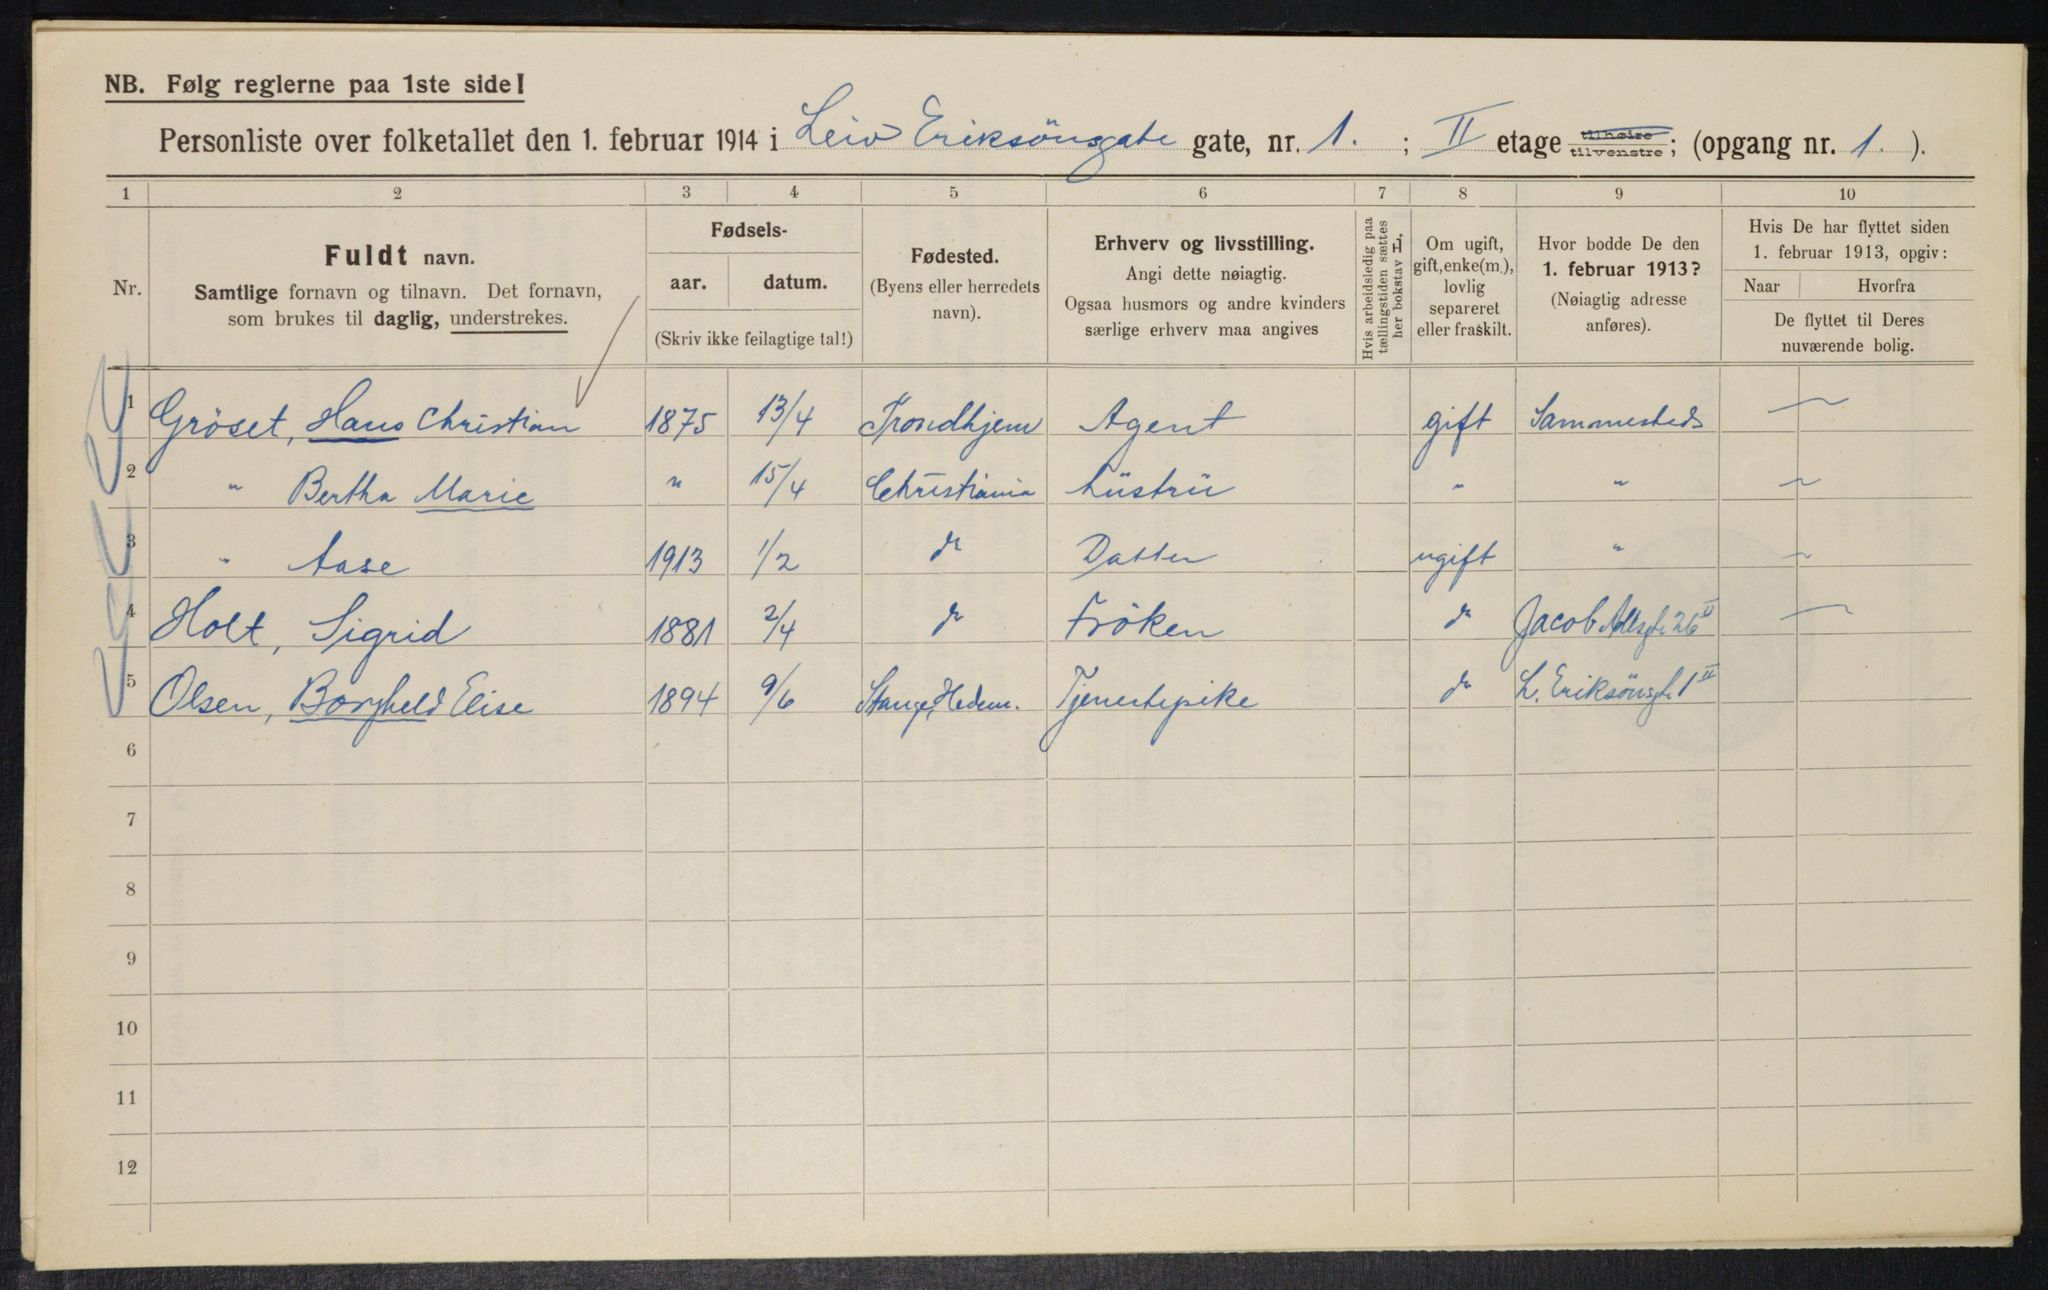 NB. Følg reglerne paa 1ste side!
Personliste over folketallet den 1. februar 1914 i Leiv Eriksönsgate gate, nr. 1. ; II etage tilhøire tilvenstre; (opgang nr. 1. ).
1 2 3 4 5 6 7 8 9 10
Nr.
Fuldt navn.
Samtlige fornavn og tilnavn. Det fornavn,
som brukes til daglig, understrekes.
Fødsels-
aar. datum.
(Skriv ikke feilagtige tal!)
Fødested.
(Byens eller herredets
navn).
Erhverv og livsstilling.
Angi dette nøiagtig.
Ogsaa husmors og andre kvinders
særlige erhverv maa angives
Hvis arbeidsledig paa
tællingstiden sættes
her bokstav L.
Om ugift,
gift, enke(m.),
lovlig
separeret
eller fraskilt.
Hvor bodde De den
1. februar 1913?
(Nøiagtig adresse
anføres).
Hvis De har flyttet siden
1. februar 1913, opgiv:
Naar Hvorfra
De flyttet til Deres
nuværende bolig.
1 Gröset, Hans Christian 1875 13/4 Trondhjem Agent gift Sammesteds —
2 " Bertha Marie " 15/4 Christiania hüstrü " " ~
3 " Aase 1913 1/2 do Datter ugift " ~
4 Holt, Sigrid 1881 2/4 do Fröken do Jacob Allsgt. 26 II —
5 Olsen, Borghild Elise 1894 9/6 Stange, Hedem. Tjenestepike do L. Eriksönsgt. 1 II
6
7
8
9
10
11
12